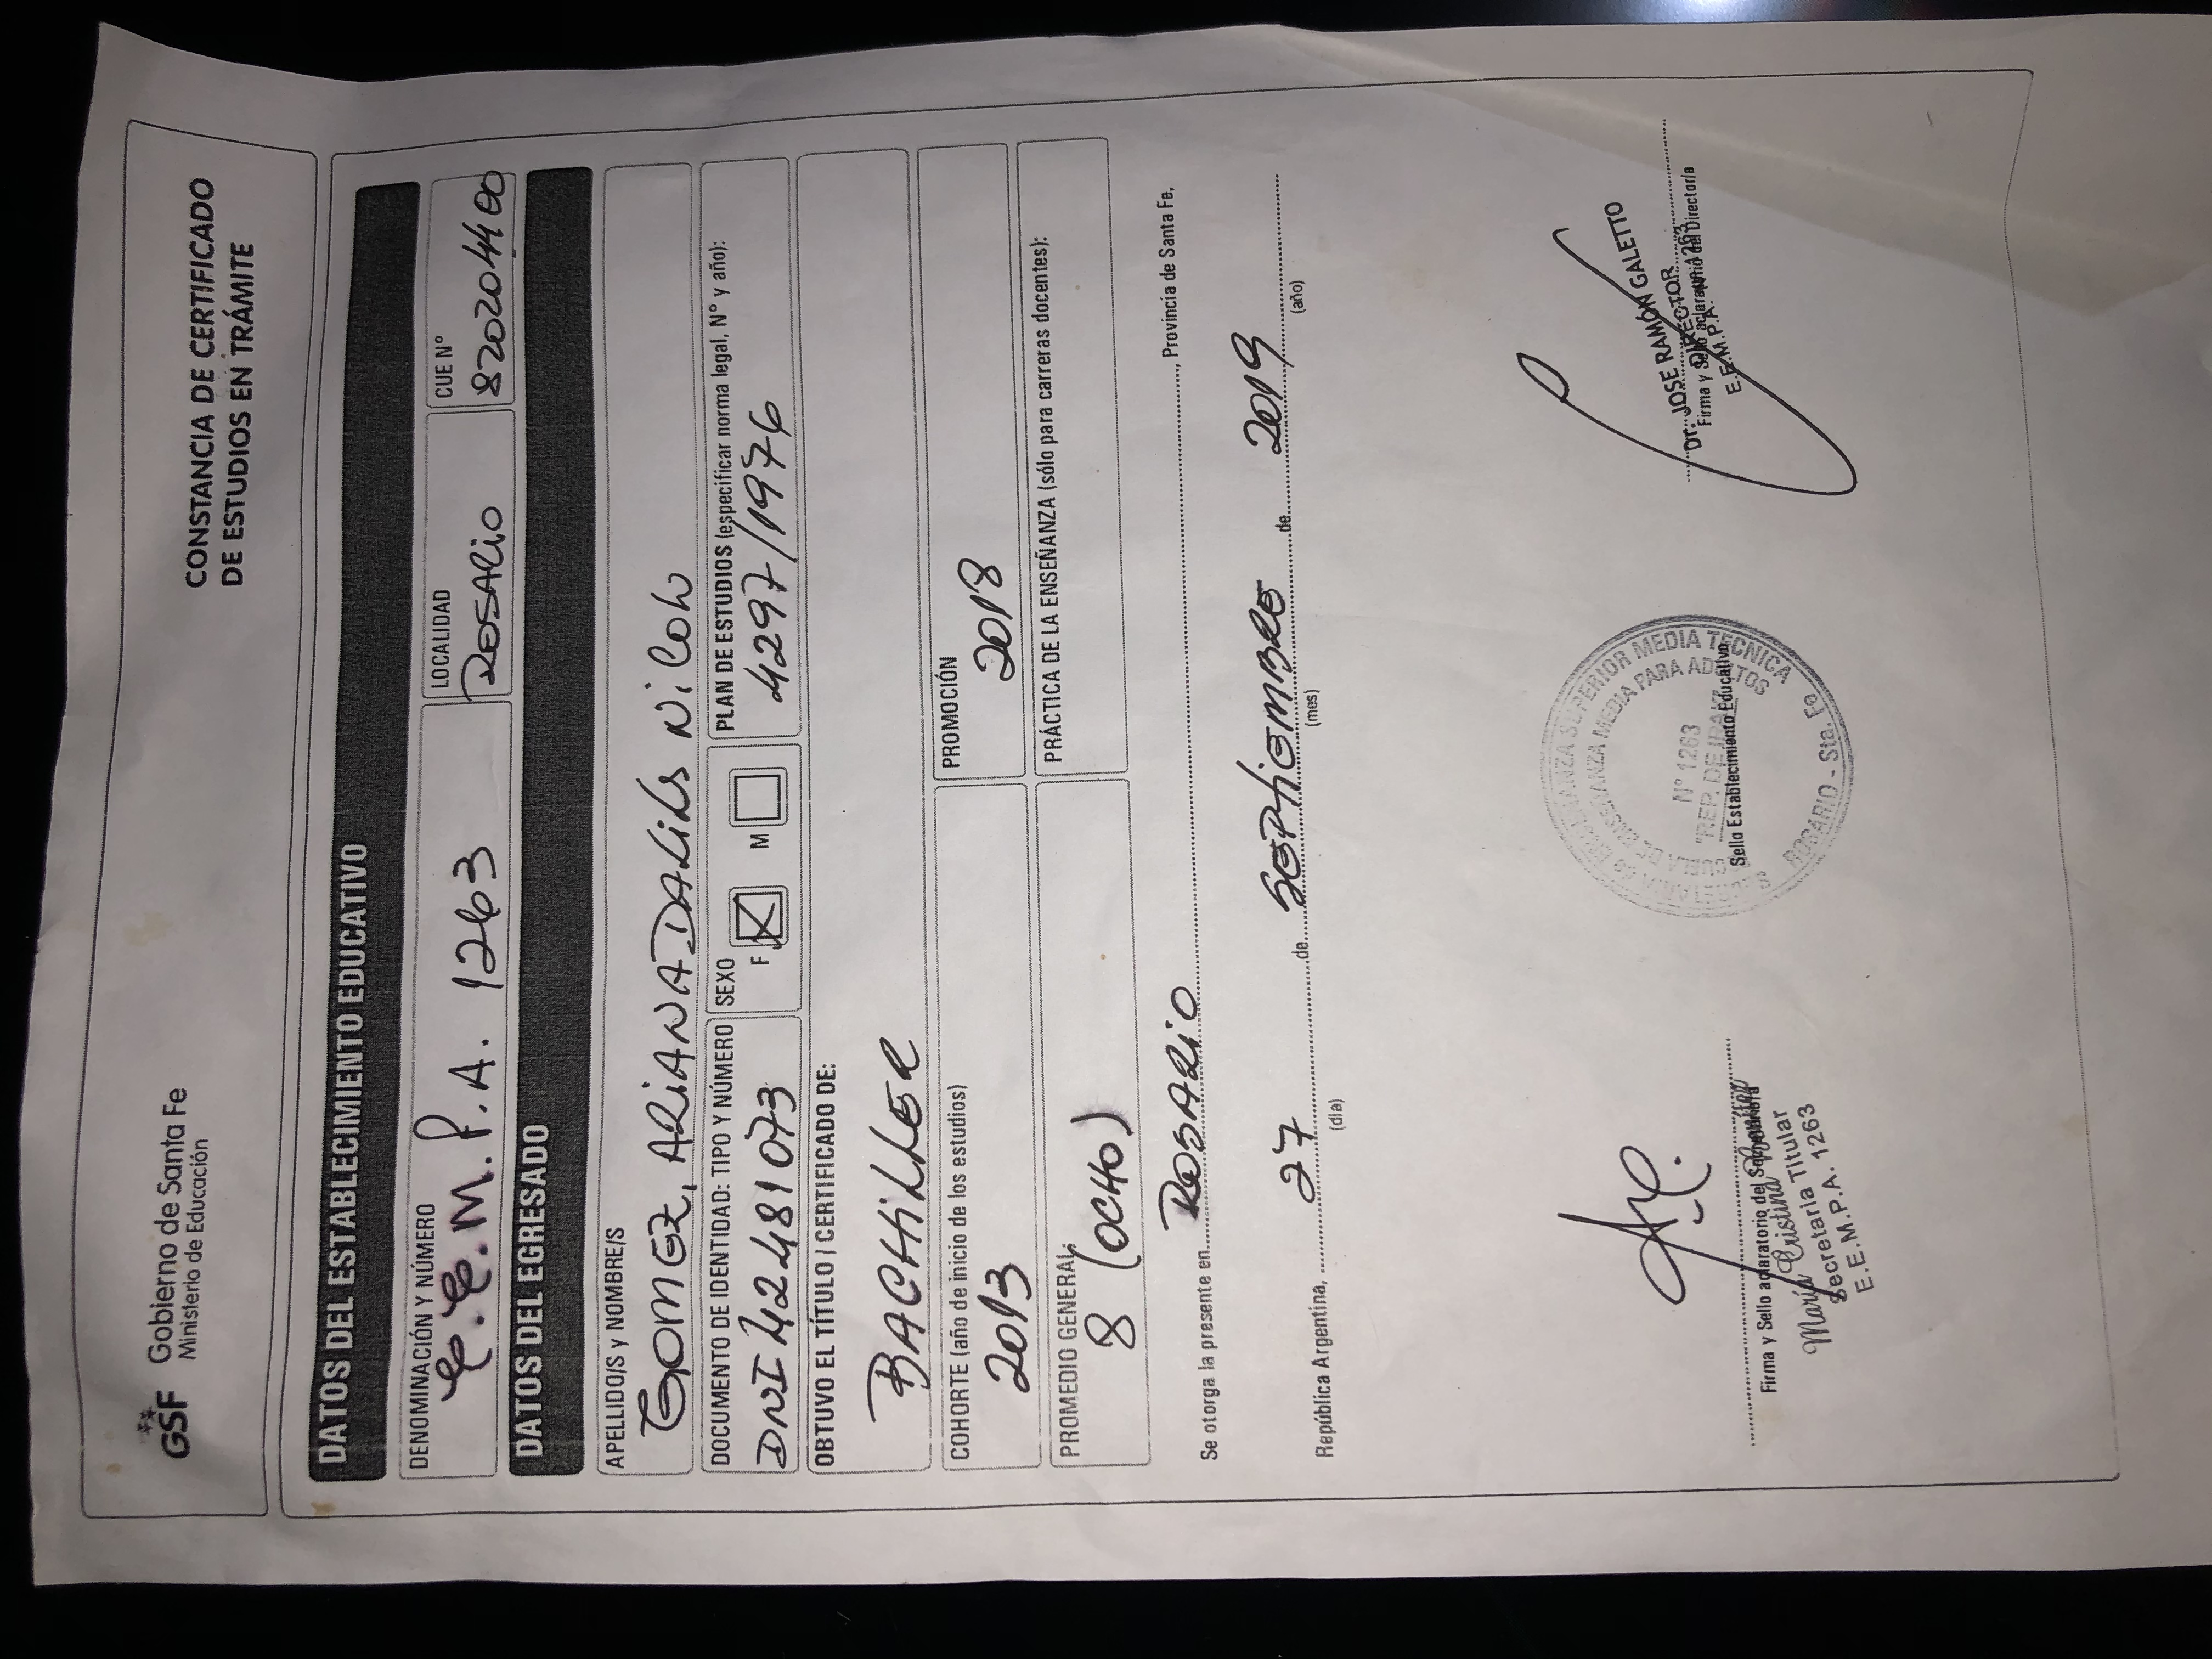 GSF Gobierno de Santa Fe
Ministerio de Educación
CONSTANCIA DE CERTIFICADO
DE ESTUDIOS EN TRÁMITE
DATOS DEL ESTABLECIMIENTO EDUCATIVO
DENOMINACIÓN Y NÚMERO
E.E.M.P.A. 1263
LOCALIDAD
ROSARIO
CUE Nº
8202044 00
DATOS DEL EGRESADO
APELLIDO/S y NOMBRE/S
GOMEZ, ARIANA DALILS
DOCUMENTO DE IDENTIDAD: TIPO Y NÚMERO
DNI 42481073
SEXO
F X M
PLAN DE ESTUDIOS (especificar norma legal, Nº y año):
4297/1976
OBTUVO EL TÍTULO / CERTIFICADO DE:
BACHILLER
COHORTE (año de inicio de los estudios)
2013
PROMOCIÓN
2018
PROMEDIO GENERAL:
8 (OCHO)
PRÁCTICA DE LA ENSEÑANZA (sólo para carreras docentes):
Se otorga la presente en ROSARIO, Provincia de Santa Fe,
República Argentina, 27 de SEPTIEMBRE de 2019
(día) (mes) (año)
Firma y Sello aclaratorio del
María Cristina
Secretaria Titular
E.E.M.P.A. 1263
ENSEÑANZA SUPERIOR MEDIA TECNICA
ESCUELA DE ENSEÑANZA MEDIA PARA ADULTOS
Nº 1263
ROSARIO - Sta. Fe
Sello Establecimiento Educativo
Dr. JOSE RAMÓN GALETTO
DIRECTOR
E.E.M.P.A. 1263
Firma y Sello aclaratorio del Director/a